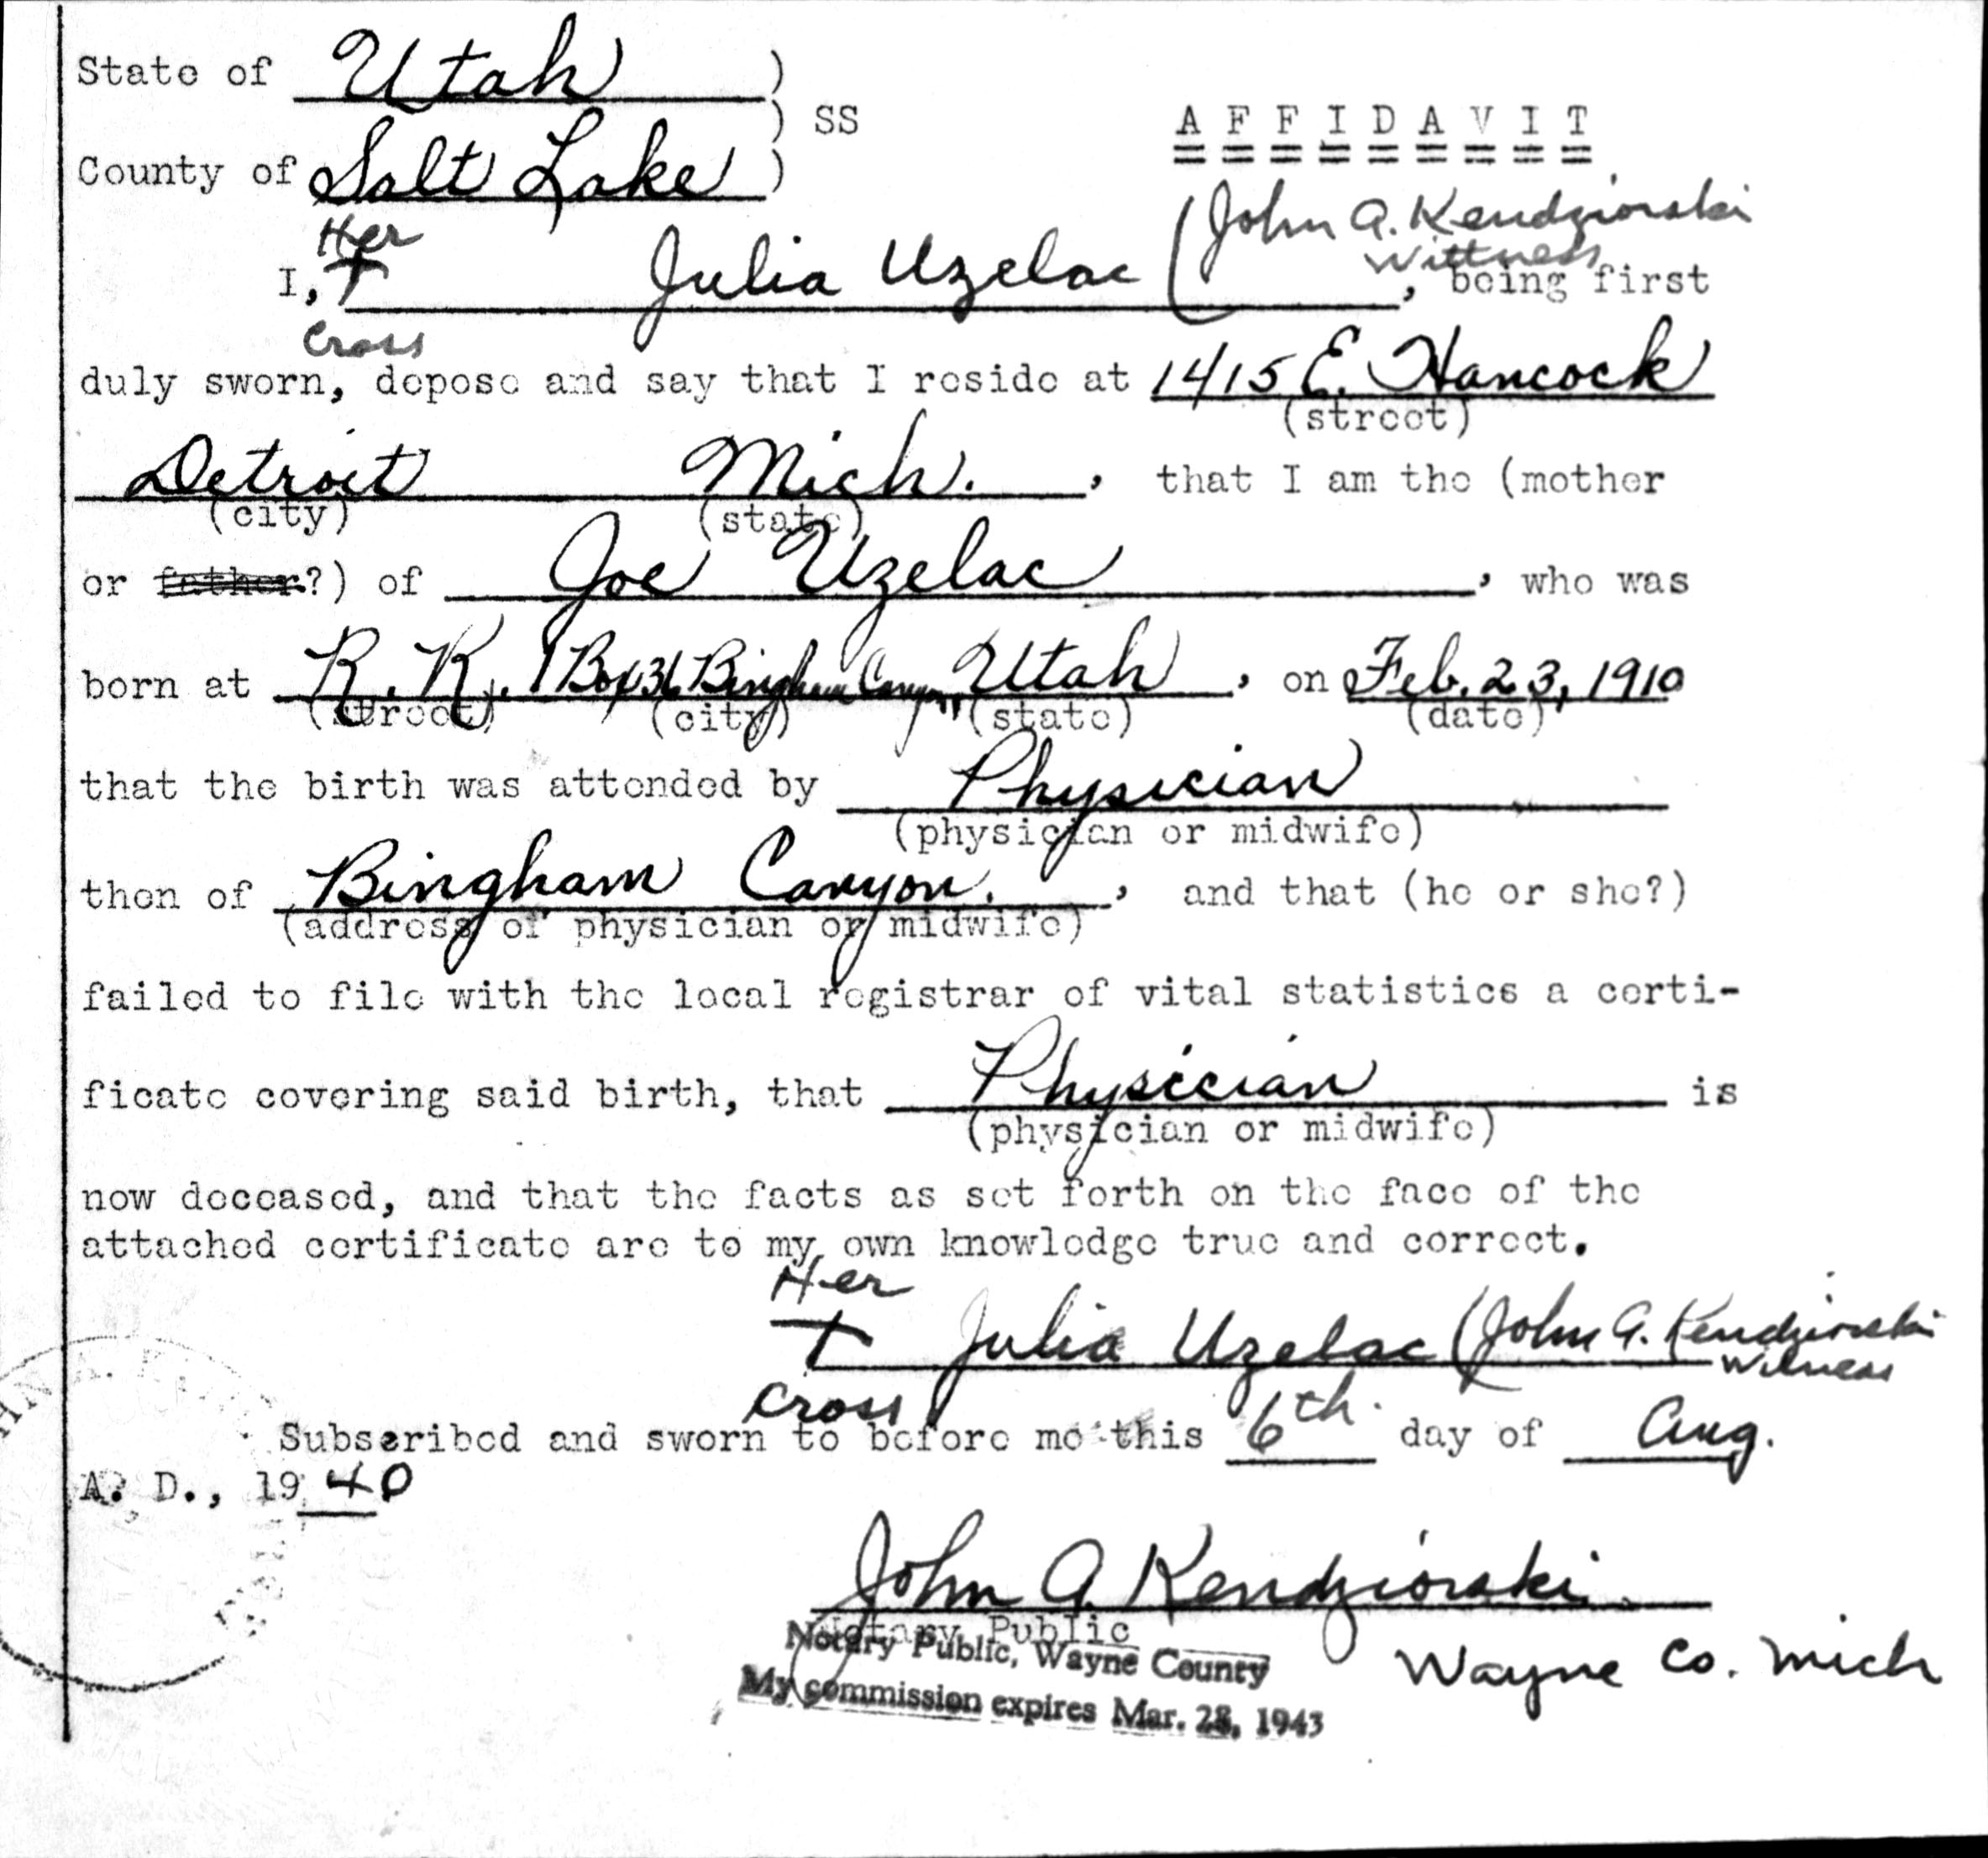 State of Utah )
) SS
A F F I D A V I T
County of Salt Lake )
Her (John A. Kendziorski
Wittness
I, + Julia Uzelac , being first
Cross
duly sworn, depose and say that I reside at 1415 E. Hancock
(street)
Detroit Mich. , that I am the (mother
(city) (state)
or father?) of Joe Uzelac , who was
born at R.R. 1 Box 36 Bingham Canyon, Utah , on Feb. 23, 1910
(street) (city) (state) (date)
that the birth was attended by Physician
(physician or midwife)
then of Bingham Canyon. , and that (he or she?)
(address of physician or midwife)
failed to file with the local registrar of vital statistics a certi-
ficate covering said birth, that Physician is
(physician or midwife)
now deceased, and that the facts as set forth on the face of the
attached certificate are to my own knowledge true and correct.
Her
+ Julia Uzelac (John A. Kendziorski
Witness
Cross
Subscribed and sworn to before me this 6th. day of Aug.
A. D., 19 40
John A. Kendziorski
Notary Public
Notary Public, Wayne County
Wayne Co. Mich
My commission expires Mar. 28, 1943